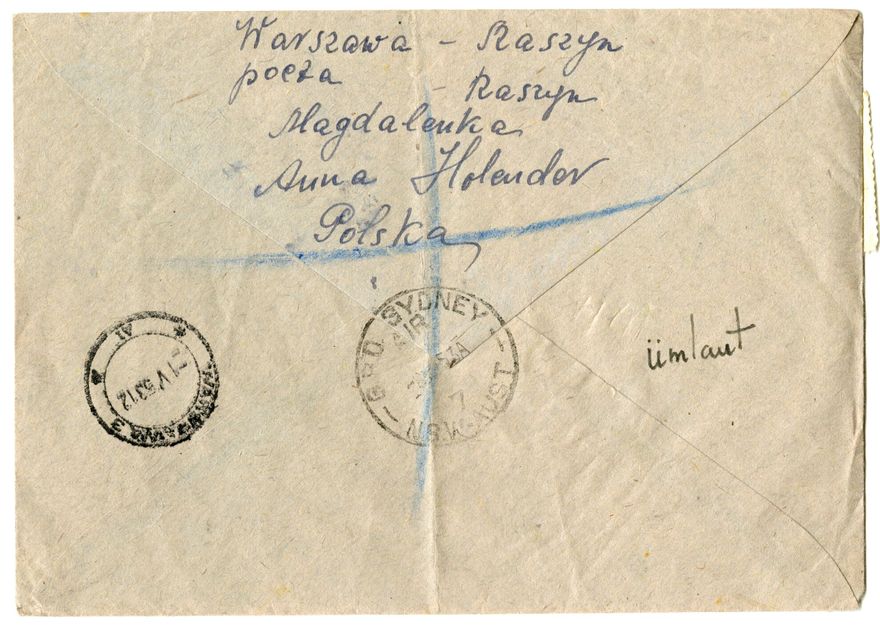 Warszawa - Raszyn
poczta - Raszyn
Magdalenka
Anna Holender
Polska
WARSZAWA 3
IV 53 12
G.P.O. SYDNEY
AIR
53A
N.S.W-AUST
ümlaut